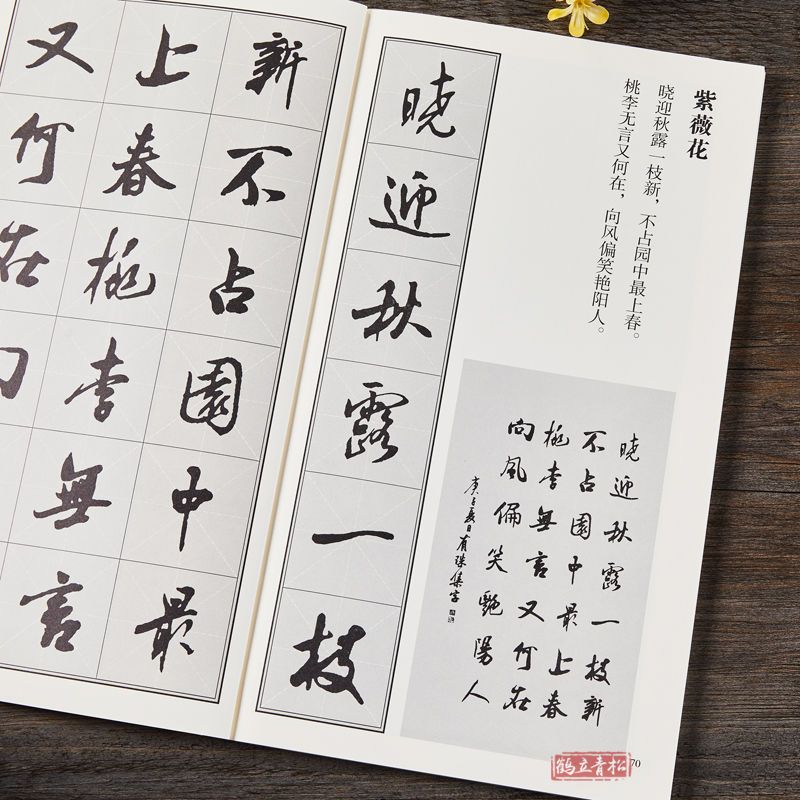 紫薇花
晓迎秋露一枝新，不占园中最上春。
桃李无言又何在，向风偏笑艳阳人。
晓迎秋露一枝新
不占園中最上春
桃李無言又何在
向風偏笑艷陽人
庚子夏日有珠集字
晓迎秋露一枝
新不占園中最
上春桃李無言
又何在
70
鹤立青松